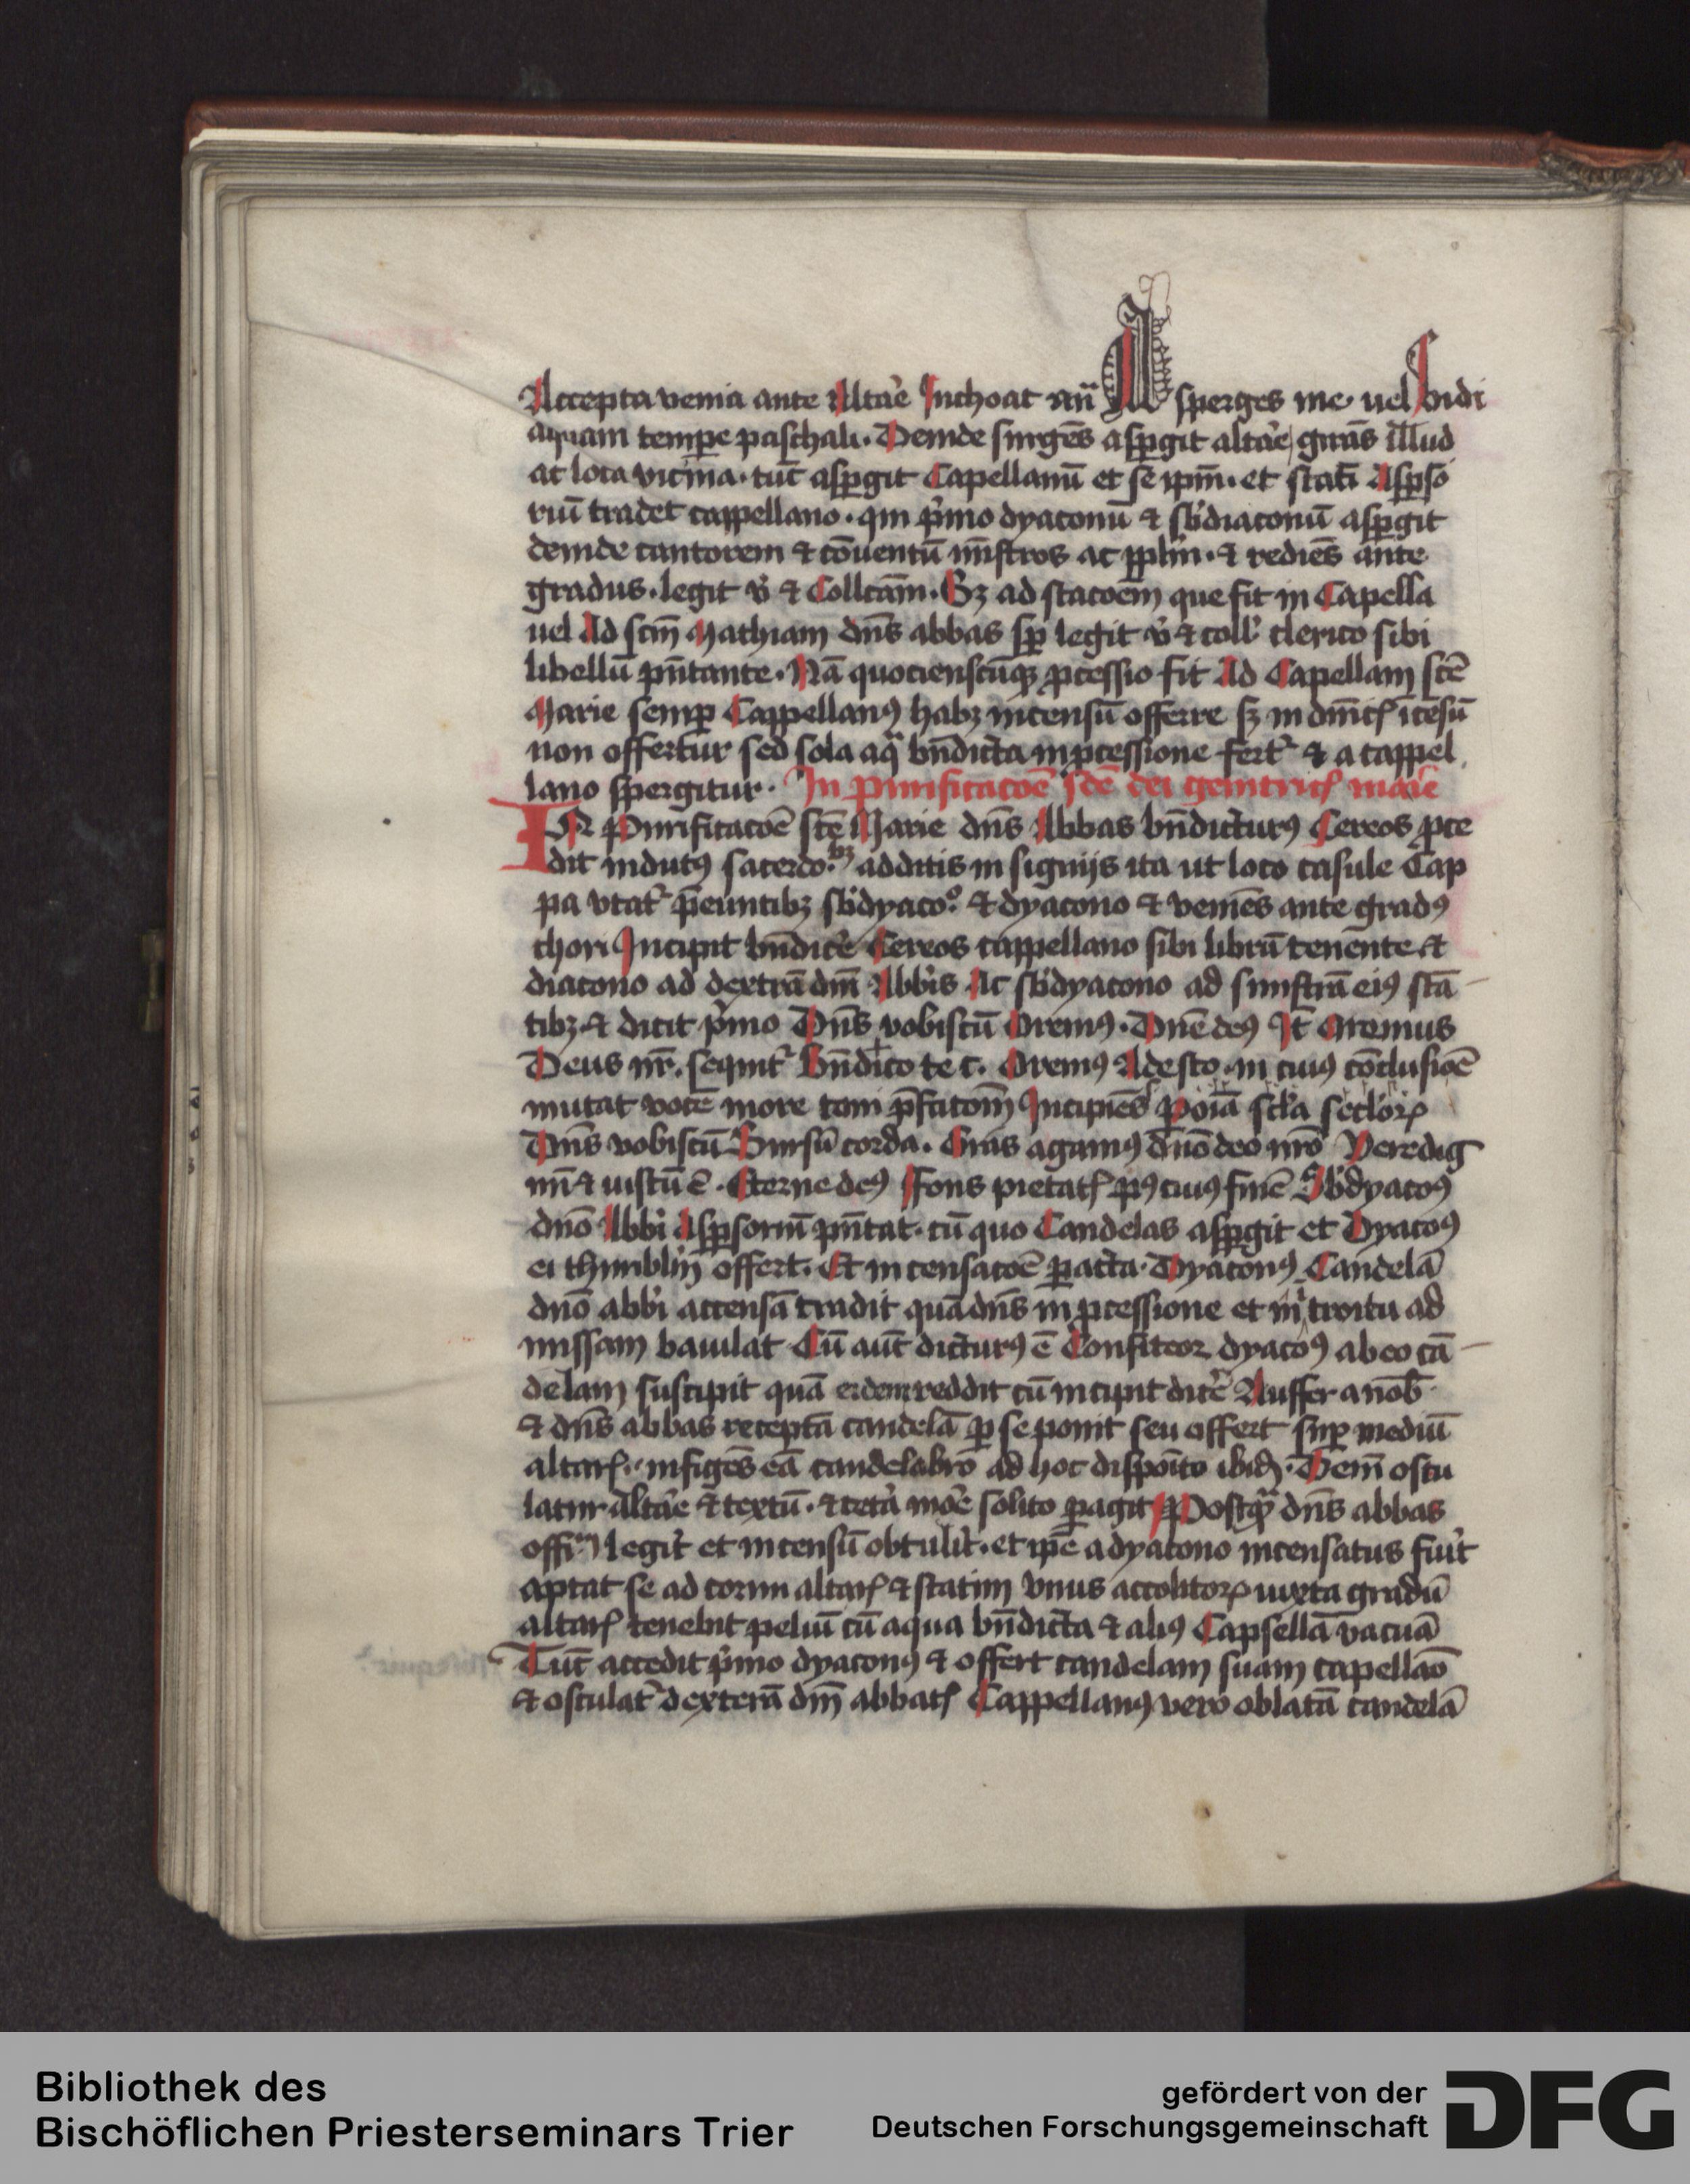 Accepta venia ante Altar̄e Inchoat an̄ Asperges me uel Uidi
aquam tempe paschali. Deinde surgēs aspgit altar̄e gradus illud
at loca vicina. tūc aspgit Capellanū et se ipm̄. et stati Aspso
riū tradet cappellano. qui p̄mo dyaconū & sbdiaconū aspgit
deinde cantorem & cōuentū mīstros ac pplm̄. & rediēs ante
gradus. legit v̄ & Collcām. Sz ad stacōem que fit in Capella
uel Ad scm̄ Mathiam dn̄s abbas sp legit v̄ & coll̄ clerico sibi
libellū pn̄tante. Nā quocienscūqz pcessio fit Ad Capellam scē
Marie semp Cappellanꝰ habz incensū offerre sz in dn̄icꝭ icēsū
non offertur sed sola aq̄ bn̄dicta in pcessione fert̄ & a cappel
lano spergitur. In purificacōe scē dei genitricꝭ marīe
IN Purificacōe scē Marie dn̄s Abbas bn̄dicturꝰ Cereos pce
dit indutꝰ sacerdo.bz additis in signijs ita ut loco casule Cap
pa vtat̄ p̄euntibz sbdyaco.º & dyacono & veniēs ante gradꝰ
chori Incipit bn̄dicē Cereos cappellano sibi librū tenente &
diacono ad dextrā dn̄i Abb̄is Ac sbdyacono ad sinistrā eiꝰ stā
tibz & dicit p̄mo Dn̄s vobiscū Oremꝰ. Dn̄e deꝰ It̄ Oremus
Deus nr̄. sequit̄ Bn̄dico te c. Oremꝰ Adesto in cuiꝰ cōclusiōe
mutat vocē more tom p̄facōm Incipiēs p oīa scl̄a seclorꝝ
Dn̄s vobiscū Sursū corda. Grās agamꝰ dn̄o deo nr̄o Vere dig
nū & iustū ē. Eterne deꝰ Fons pietatꝭ pꝰ cuiꝰ finē Sbdyacoꝰ
dn̄o Abbi Aspsoriū pn̄tat. cū quo Candelas aspgit et Dyacoꝰ
ei thuribl̄m offert. Et incensacōe pacta. Dyaconꝰ Candelā
dn̄o abbi accensā tradit quā dn̄s in pcessione et in troitu ad
missam baiulat Cū aūt dicturꝰ ē Confiteor dyacōꝰ ab eo cā
delam suscipit quā eidem reddit cū incipit dicē Auffer a nob̄
& dn̄s abbas receptā candelā p se ponit seu offert sup mediū
altarꝭ. infigēs eā candelabro ad hoc dispoīto ibid. Dem̄ oscu
latur altar̄e & textū. & cetā more solito pagit Postq̄ dn̄s abbas
offim legit et incensū obtulit. et ipē a dyacono incensatus fūit
aptat se ad cornu altarꝭ & statim vnus accolitorꝝ iuxta gradū
altarꝭ tenebit peluī cū aqua bn̄dicta & aliꝰ Capsellā vacuā
Tūc accedit p̄mo dyaconꝰ & offert candelam suam capellāo
& osculat̄ dexterā dn̄i abbatꝭ Cappellanꝰ vero oblatā candelā
Bibliothek des
Bischöflichen Priesterseminars Trier
gefördert von der
Deutschen Forschungsgemeinschaft
DFG